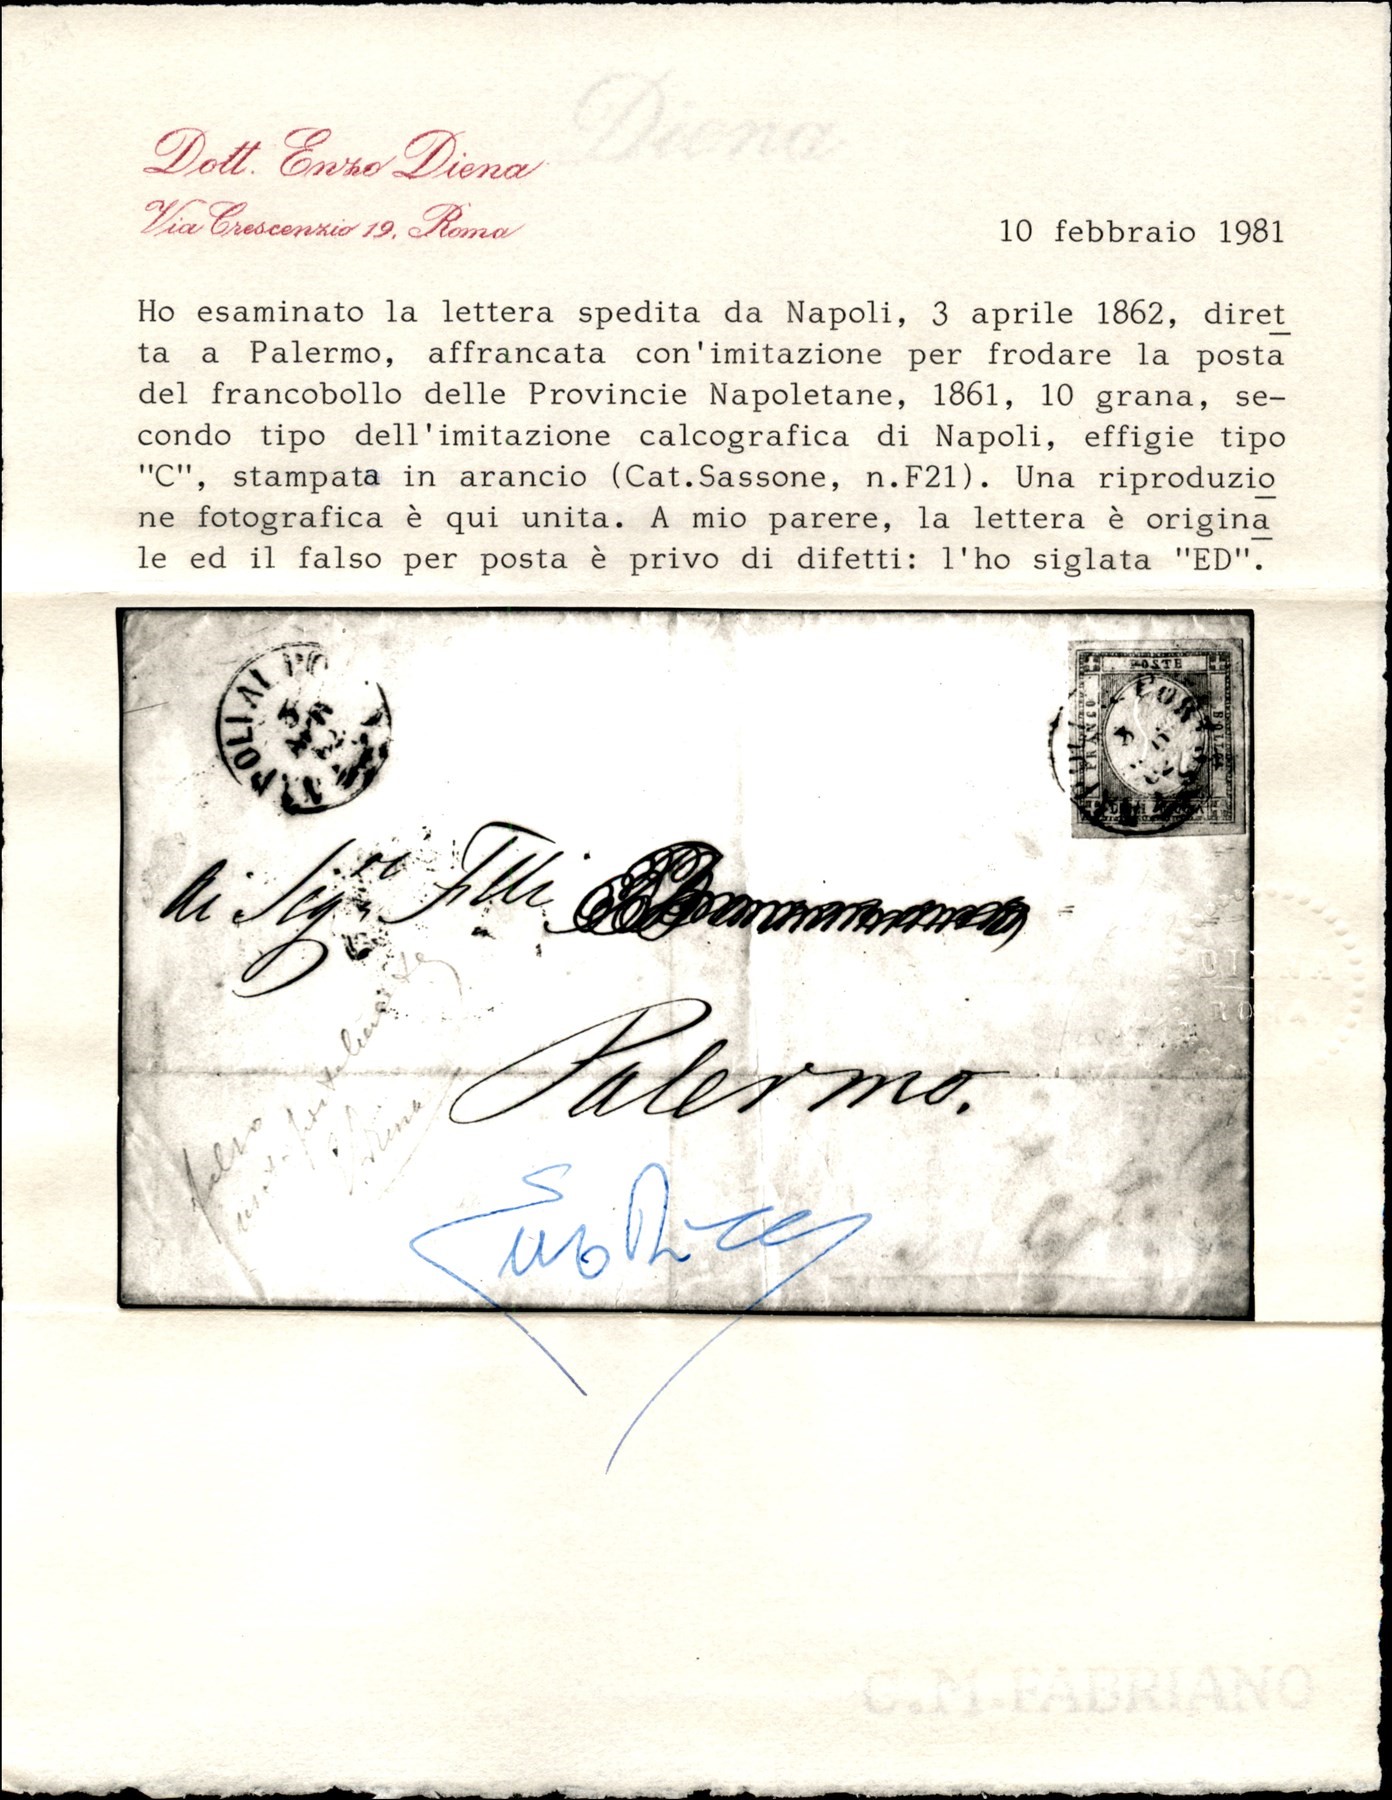 Diena
Dott. Enzo Diena
Via Crescenzio 19, Roma
10 febbraio 1981
Ho esaminato la lettera spedita da Napoli, 3 aprile 1862, diret
ta a Palermo, affrancata con'imitazione per frodare la posta
del francobollo delle Provincie Napoletane, 1861, 10 grana, se-
condo tipo dell'imitazione calcografica di Napoli, effigie tipo
"C", stampata in arancio (Cat.Sassone, n.F21). Una riproduzio
ne fotografica è qui unita. A mio parere, la lettera è origina
le ed il falso per posta è privo di difetti: l'ho siglata "ED".
POSTE
FRANCO
BOLLO
Palermo.
falso
Enzo Diena
DIENA
ROMA
C.M.FABRIANO